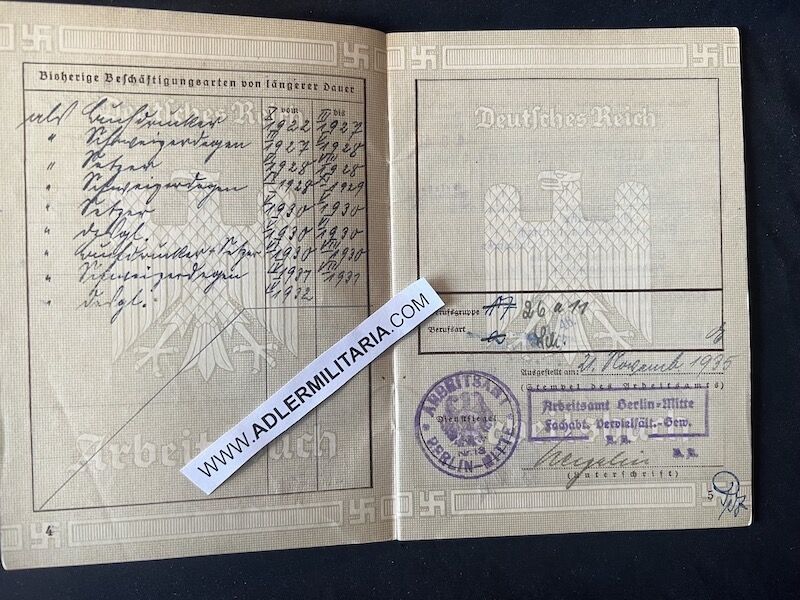 Bisherige Beschäftigungsarten von längerer Dauer
Deutsches Reich
vom bis
als Buchdrucker V 1922 III 1927
" Schweizerdegen 1927 1928
" Setzer 1928 VIII 1928
" Schweizerdegen 1928 1929
" Setzer 1930 1930
" desgl. 1930 1930
" Buchdrucker + Setzer 1930 VIII 1930
" Schweizerdegen 1931 VIII 1931
" desgl. 1932
Arbeitsbuch
4
WWW.ADLERMILITARIA.COM
Deutsches Reich
Berufsgruppe 17 26 a 11
Berufsart
Ausgestellt am: 21. November 1935
(Stempel des Arbeitsamts)
ARBEITSAMT
Dienstsiegel
BERLIN-MITTE
Arbeitsamt Berlin-Mitte
Fachabt. Vervielfält.-Gew.
(Unterschrift)
5